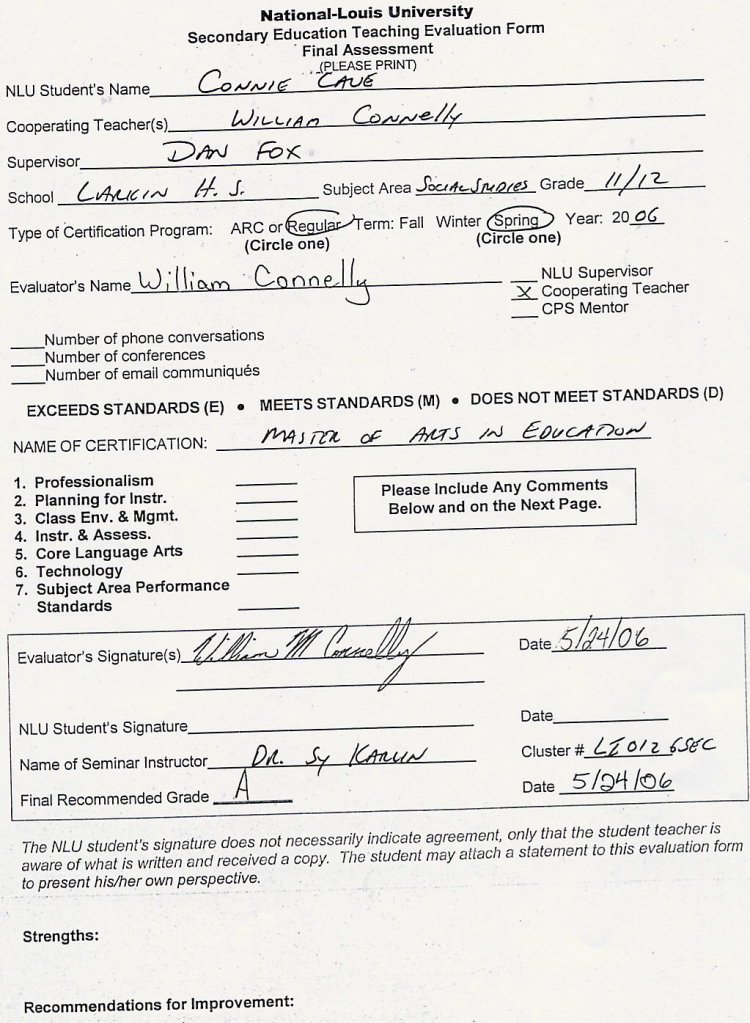 National-Louis University
Secondary Education Teaching Evaluation Form
Final Assessment
(PLEASE PRINT)
NLU Student's Name CONNIE CAVE
Cooperating Teacher(s) WILLIAM CONNElly
Supervisor DAN FOX
School LARKIN H. S. Subject Area SOCIAL STUDIES Grade 11/12
Type of Certification Program: ARC or Regular Term: Fall Winter Spring Year: 2006
(Circle one) (Circle one)
Evaluator's Name William Connelly
NLU Supervisor
X Cooperating Teacher
CPS Mentor
Number of phone conversations
Number of conferences
Number of email communiqués
EXCEEDS STANDARDS (E) • MEETS STANDARDS (M) • DOES NOT MEET STANDARDS (D)
NAME OF CERTIFICATION: MASTER OF ARTS IN EDUCATION
1. Professionalism
2. Planning for Instr.
3. Class Env. & Mgmt.
4. Instr. & Assess.
5. Core Language Arts
6. Technology
7. Subject Area Performance
Standards
Please Include Any Comments
Below and on the Next Page.
Evaluator's Signature(s) William M Connelly Date 5/24/06
NLU Student's Signature Date
Name of Seminar Instructor DR. Sy KARLIN Cluster # LI012 6SEC
Final Recommended Grade A Date 5/24/06
The NLU student's signature does not necessarily indicate agreement, only that the student teacher is
aware of what is written and received a copy. The student may attach a statement to this evaluation form
to present his/her own perspective.
Strengths:
Recommendations for Improvement: